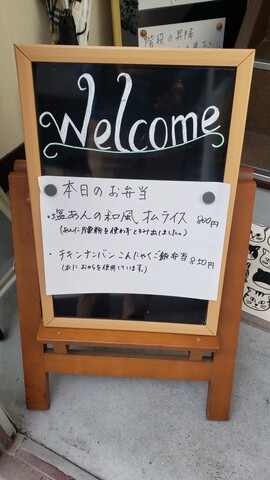 階段の昇降
Welcome
本日のお弁当
・塩あんの和風オムライス 800円
(あんに片栗粉を使わずとろみ出しました。)
・チキンナンバンこんにゃくご飯弁当 850円
(衣におからを使用しています。)